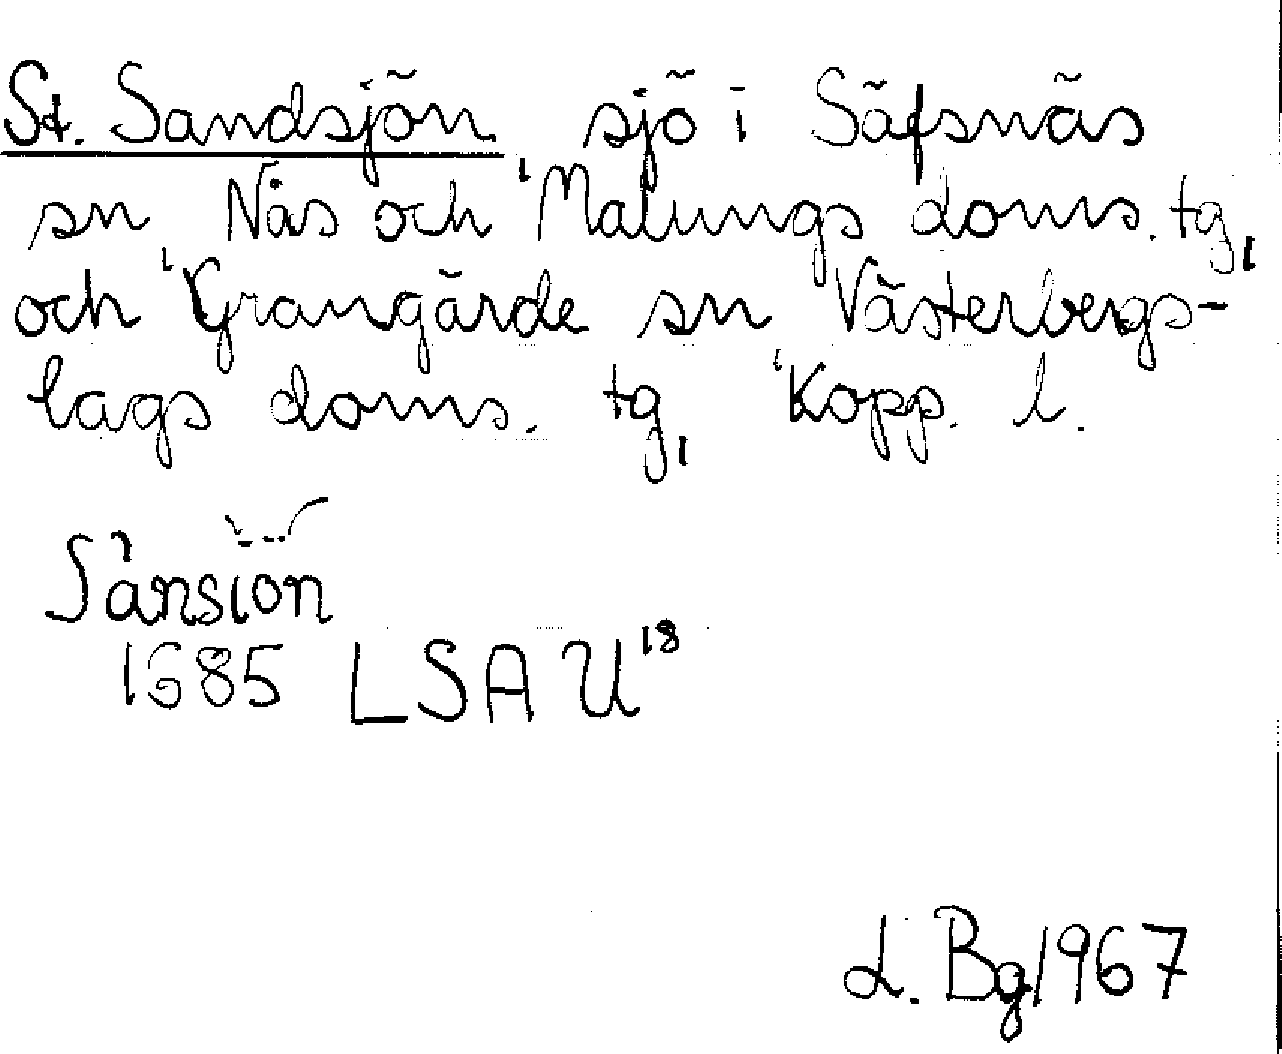 St. Sandsjön sjö i Säfsnäs
sn Nås och Malungs doms. tg,
och Grangärde sn Västerbergs-
lags doms. tg, Kopp. l.
Sånsiön
1685 LSA U18
L. Bg 1967